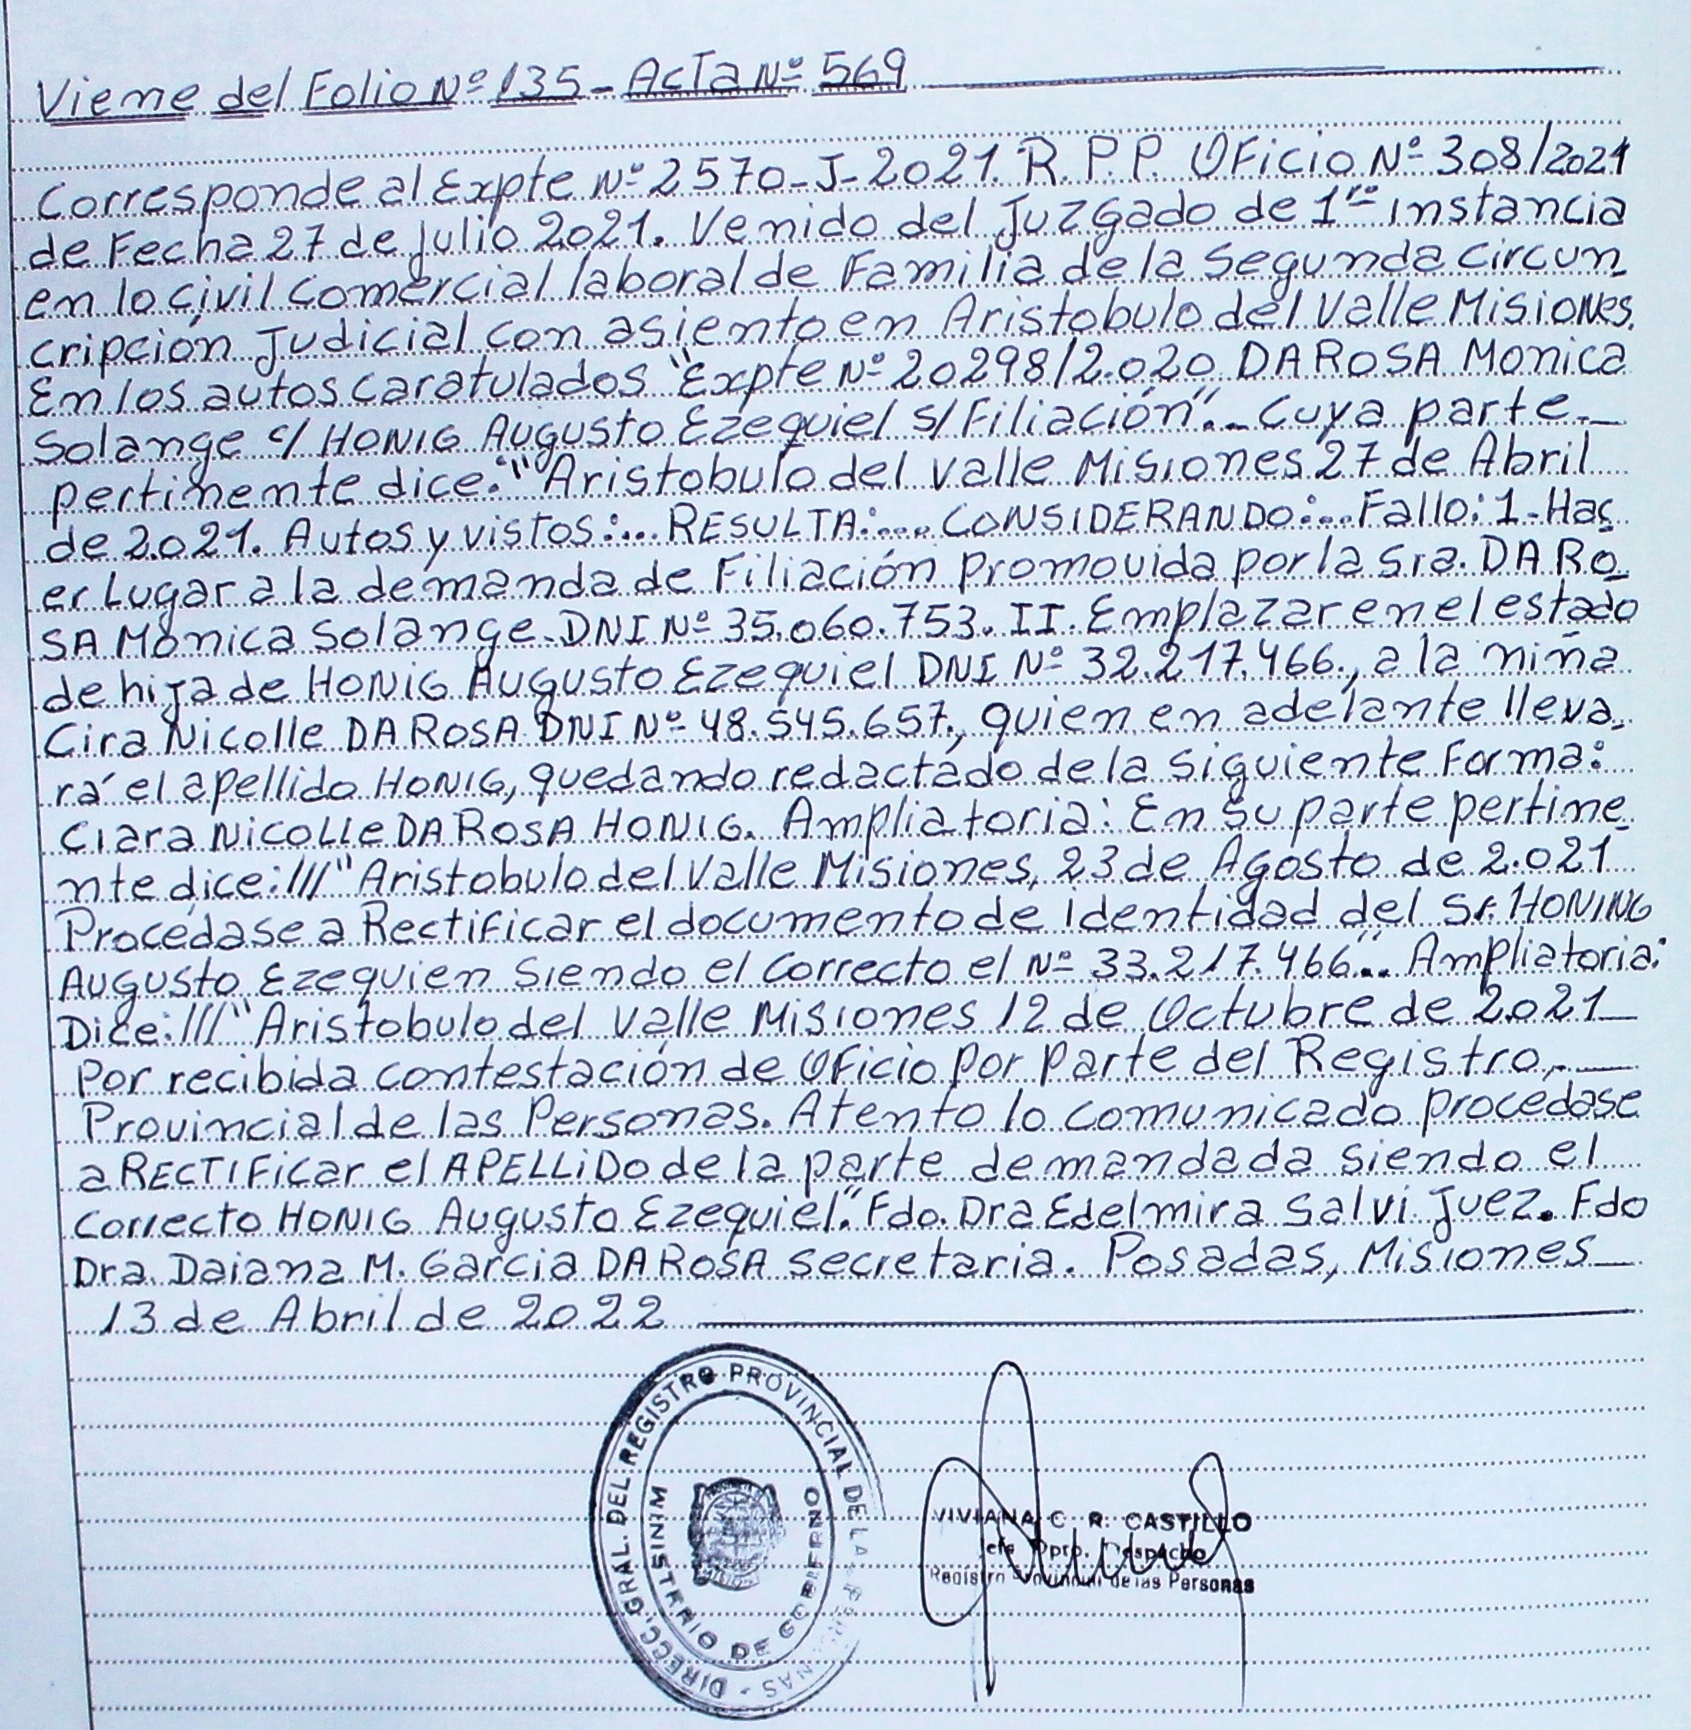 Viene del Folio Nº 135 - Acta Nº 569
Corresponde al Expte Nº 2570-J-2021. R.P.P. Oficio Nº 308/2021
de Fecha 27 de julio 2021. Venido del Juzgado de 1ra instancia
en lo civil Comercial laboral de Familia de la Segunda Circun_
cripción Judicial con asiento en Aristobulo del Valle Misiones.
En los autos caratulados "Expte Nº 20298/2.020 DA ROSA Monica
Solange c/ HONIG Augusto Ezequiel S/ Filiación".._ Cuya parte._
pertinente dice: "Aristobulo del Valle Misiones 27 de Abril
de 2.021. Autos y vistos:... RESULTA:... CONSIDERANDO:... Fallo: 1-Hac
er Lugar a la demanda de Filiación promovida por la Sra. DA RO_
SA Monica Solange. DNI Nº 35.060.753. II. Emplazar en el estado
de hija de HONIG Augusto Ezequiel DNI Nº 32.217.466., a la niña
Cira Nicolle DA ROSA DNI Nº 48.545.657., quien en adelante lleva_
rá el apellido HONIG, quedando redactado de la siguiente Forma:
Clara Nicolle DA ROSA HONIG. Ampliatoria: En su parte pertine_
nte dice: /// "Aristobulo del Valle Misiones, 23 de Agosto de 2.021
Procédase a Rectificar el documento de identidad del Sr. HONING
Augusto Ezequien Siendo el Correcto el Nº 33.217.466".. Ampliatoria:
Dice: /// "Aristobulo del Valle Misiones 12 de Octubre de 2.021_
Por recibida contestación de Oficio por parte del Registro._
Provincial de las Personas. Atento lo comunicado procedase
a RECTIFicar el APELLiDo de la parte demandada siendo el
Correcto HONIG Augusto Ezequiel". Fdo. Dra Edelmira Salvi Juez. Fdo
Dra. Daiana M. Garcia DA ROSA secretaria. Posadas, Misiones_
13 de Abril de 2022
DIRECC. GRAL. DEL REGISTRO PROVINCIAL DE LAS PERSONAS -
MINISTERIO DE GOBIERNO
VIVIANA C. R. CASTILLO
Jefe Dpto. Despacho
Registro Provincial de las Personas